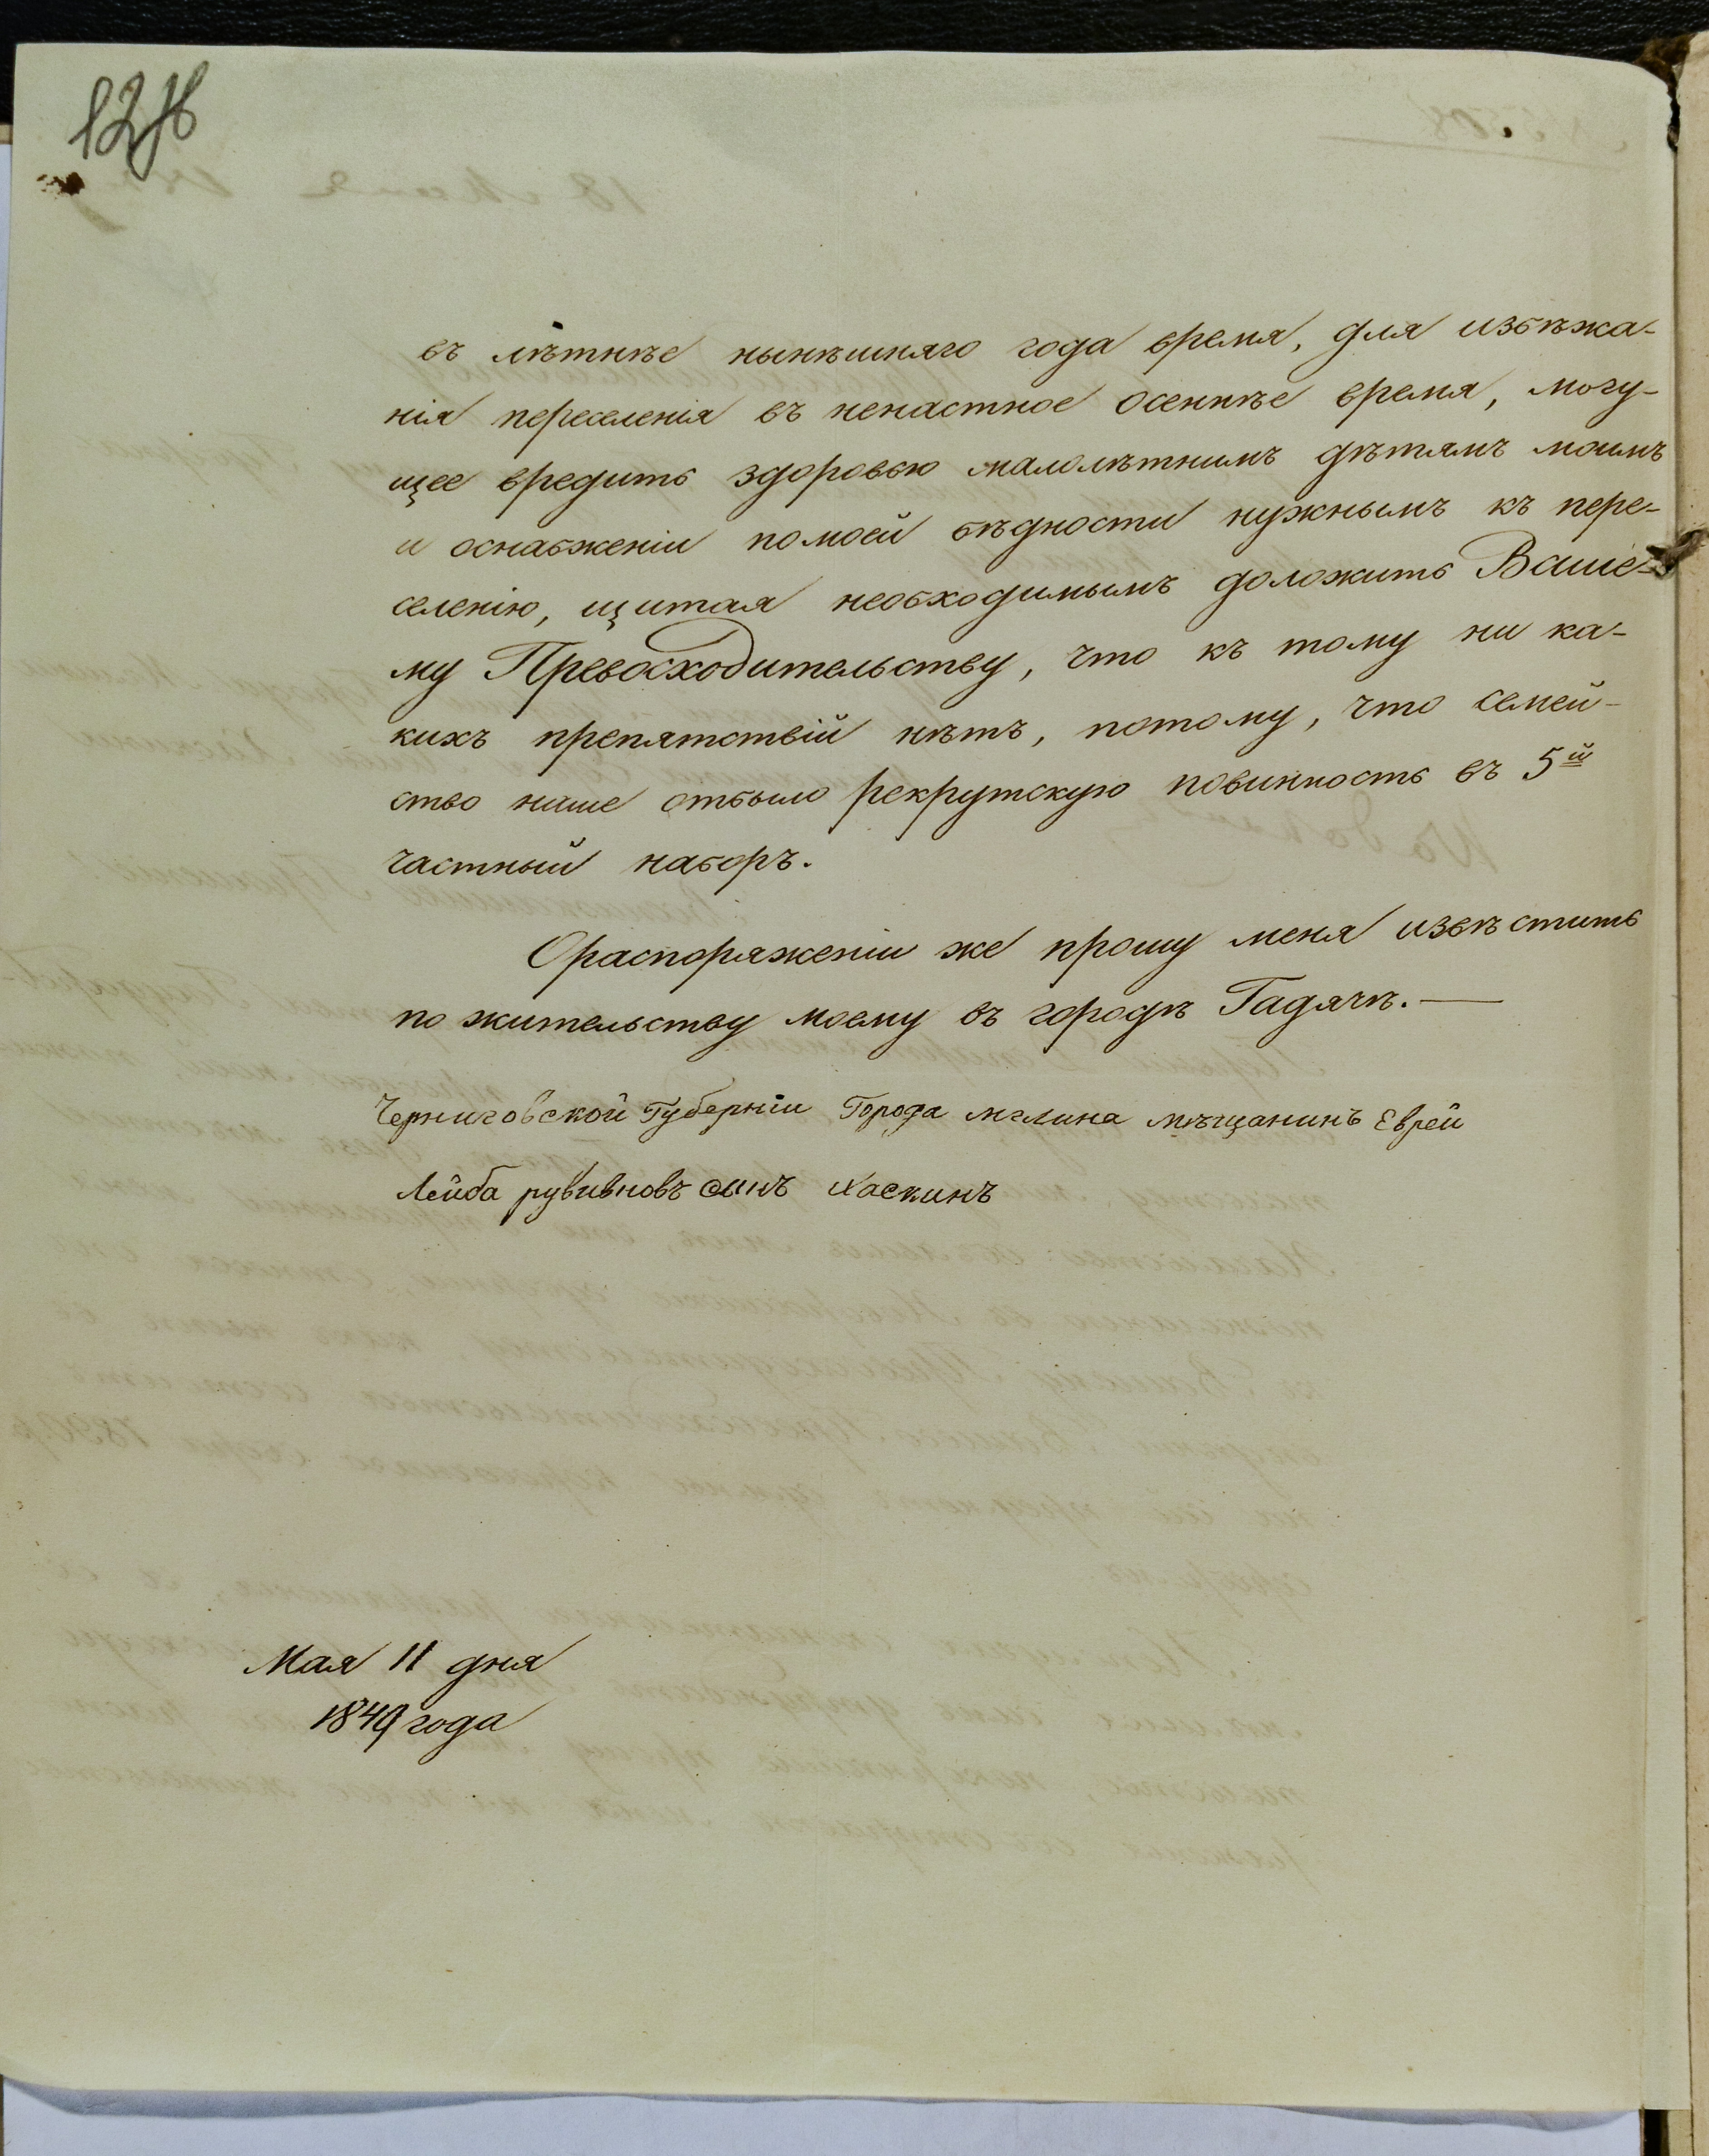 въ лѣтнѣе нынѣшняго года время, для избѣжа-
нія переселенія въ ненастное осеннѣе время, могу-
щее вредить здоровью малолѣтнимъ дѣтямъ моимъ
и оснабженіи помоей бѣдности нужнымъ къ пере-
селенію, щитая необходимымъ доложить Ваше-
му Превосходительству, что къ тому ни ка-
кихъ препятствій нѣтъ, потому, что семей-
ство наше отбыло рекрутскую повинность въ 5й
частный наборъ.
Ораспоряженіи же прошу меня извѣстить
по жительству моему въ городѣ Гадячѣ. —
Черниговской Губерніи Города мглина мѣщанинъ Еврей
Лейба рувивновъ сынъ Хаскинъ
Мая 11 дня
1849 года